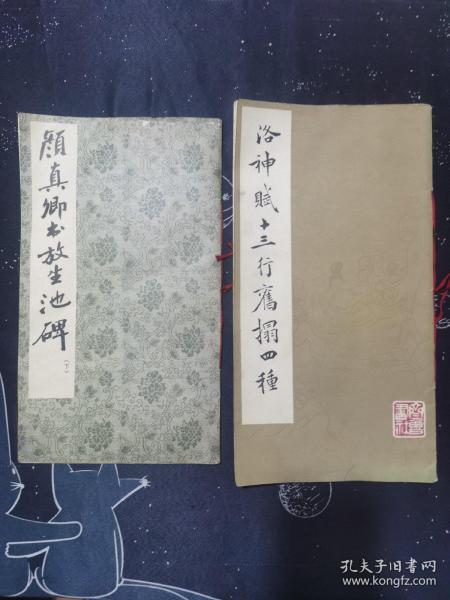 顏真卿书放生池碑
（下）
洛神賦十三行舊搨四種
齊魯書社
孔夫子旧书网
www.kongfz.com